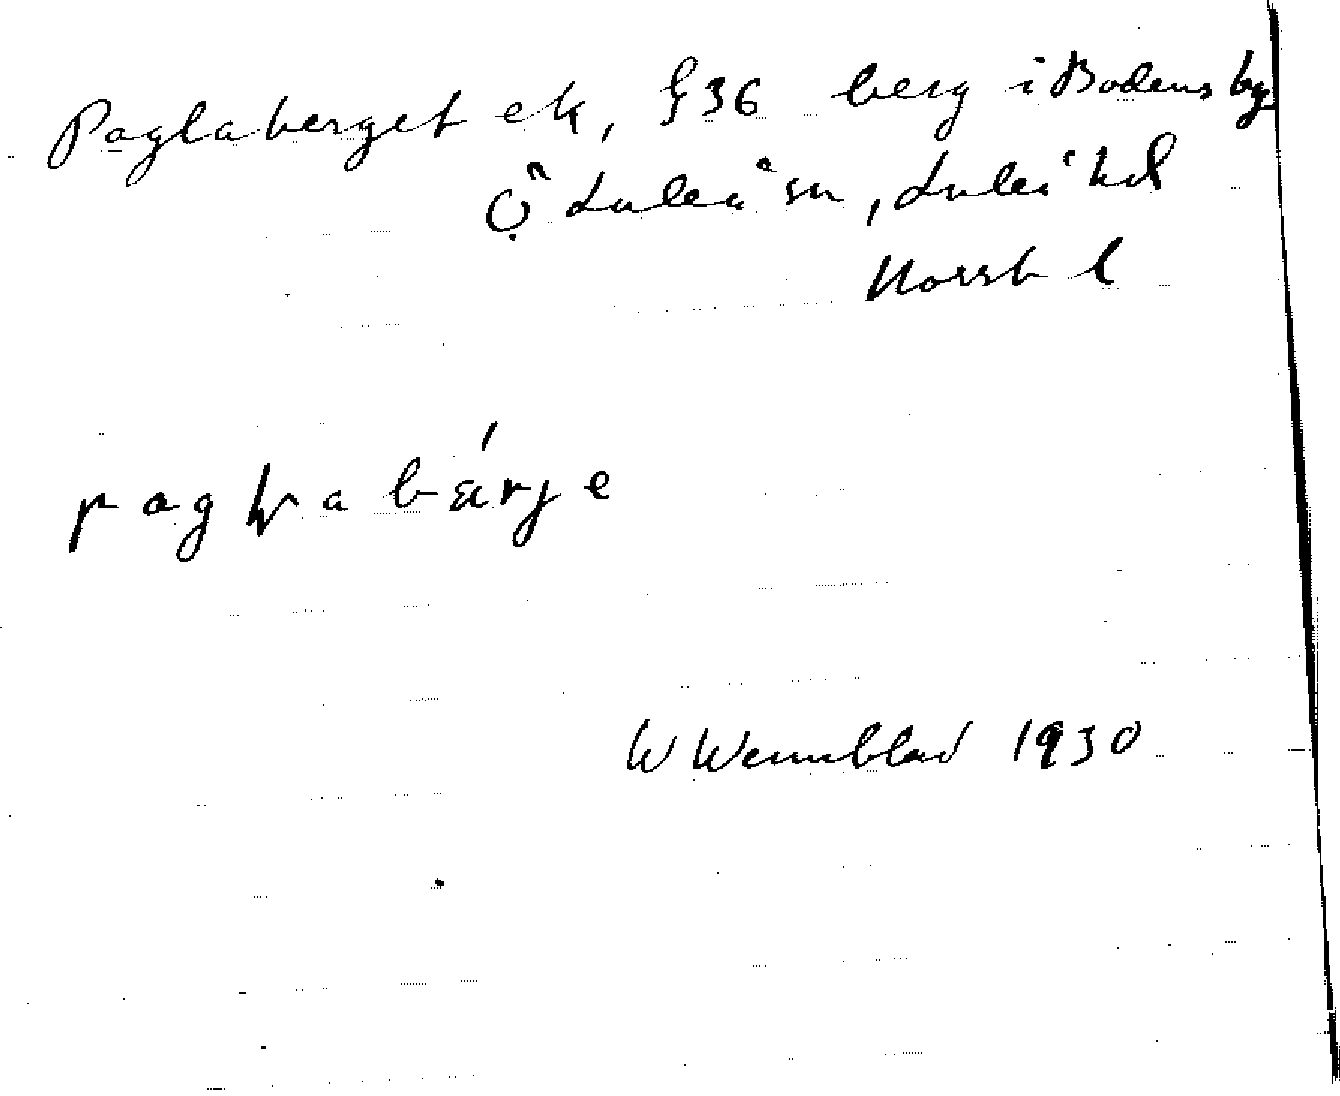 Paglaberget ek, § 36 berg i Bodens by
Ö Luleå sn, Luleå hd
Norrb l
pag bárje
W Wennblad 1930